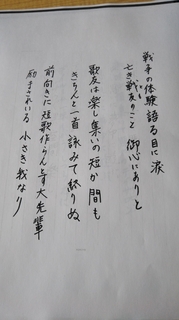 戦争の体験語る目に涙
亡き戦友のこと 御心にありと
歌友は楽し集いの短か間も
きちんと一首詠みて終りぬ
前向きに短歌作らんとす大先輩
励まされいる 小さき我なり